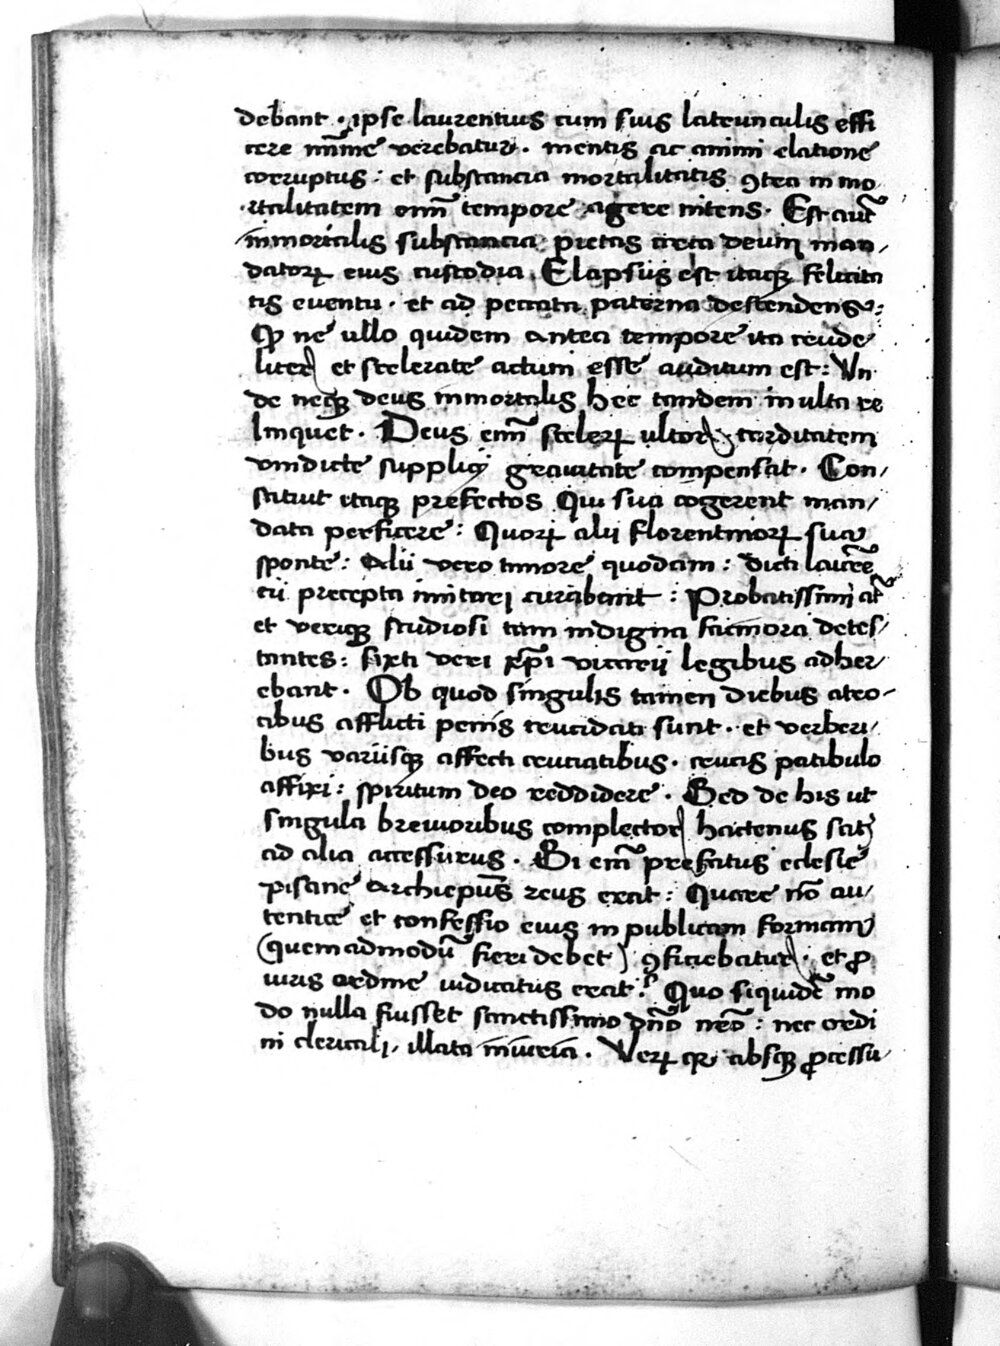 debant . ipse laurentius cum suis latrunculis effi
cere mīme verebatur . mentis ac animi elatione
corruptus : et substancia mortalitatis ꝯtra in mo
rtalitatem omī tempore agere nitens . Est aūt
inmortalis substancia pietas circa deum man
datorꝝ eius custodia . Elapsus est itaqꝫ felicita
tis eventu . et ad peccata paterna descendens :
Qꝫ ne ullo quidem antea tempore ita crude
liter et scelerate actum esse auditum est : Vn
de neqꝫ deus inmortalis hec tandem inulta re
linquet . Deus enī scelerꝝ ultor tarditatem
vindicte supplicij gravitate compensat . Con
stituit itaqꝫ prefectos Qui sua cogerent man
data perficere : Quorꝝ alij florentinorꝝ sua
sponte : Alii vero timore quodam : dicti laurē
cii precepta imitari curabant : Probatissimi at̄
et veriqꝫ studiosi tam indigna facinora detes
tantes : sixti veri xp̄i vicarii legibus adher
ebant . Ob quod singulis tamen diebus atro
cibus afflicti penis trucidati sunt . et verberi
bus variisqꝫ affecti cruciatibus . crucis patibulo
affixi : spiritum deo reddidere . Sed de his ut
singula brevioribus complector hactenus satis
ad alia accessurus . Si enī prefatus eclesie
pisane Archiepūs reus erat : Quare nō au
tentice et confessio eius in publicam formam
(quemadmodū fieri debet) ꝯficiebatur . et ꝓ
iuris ordine iudicatus erat ? Quo siquidē mo
do nulla fuisset sanctissimo dn̄o nr̄o : nec ordi
ni clericali , illata iniuria . Verꝝ qꝛ absqꝫ ꝓcessu